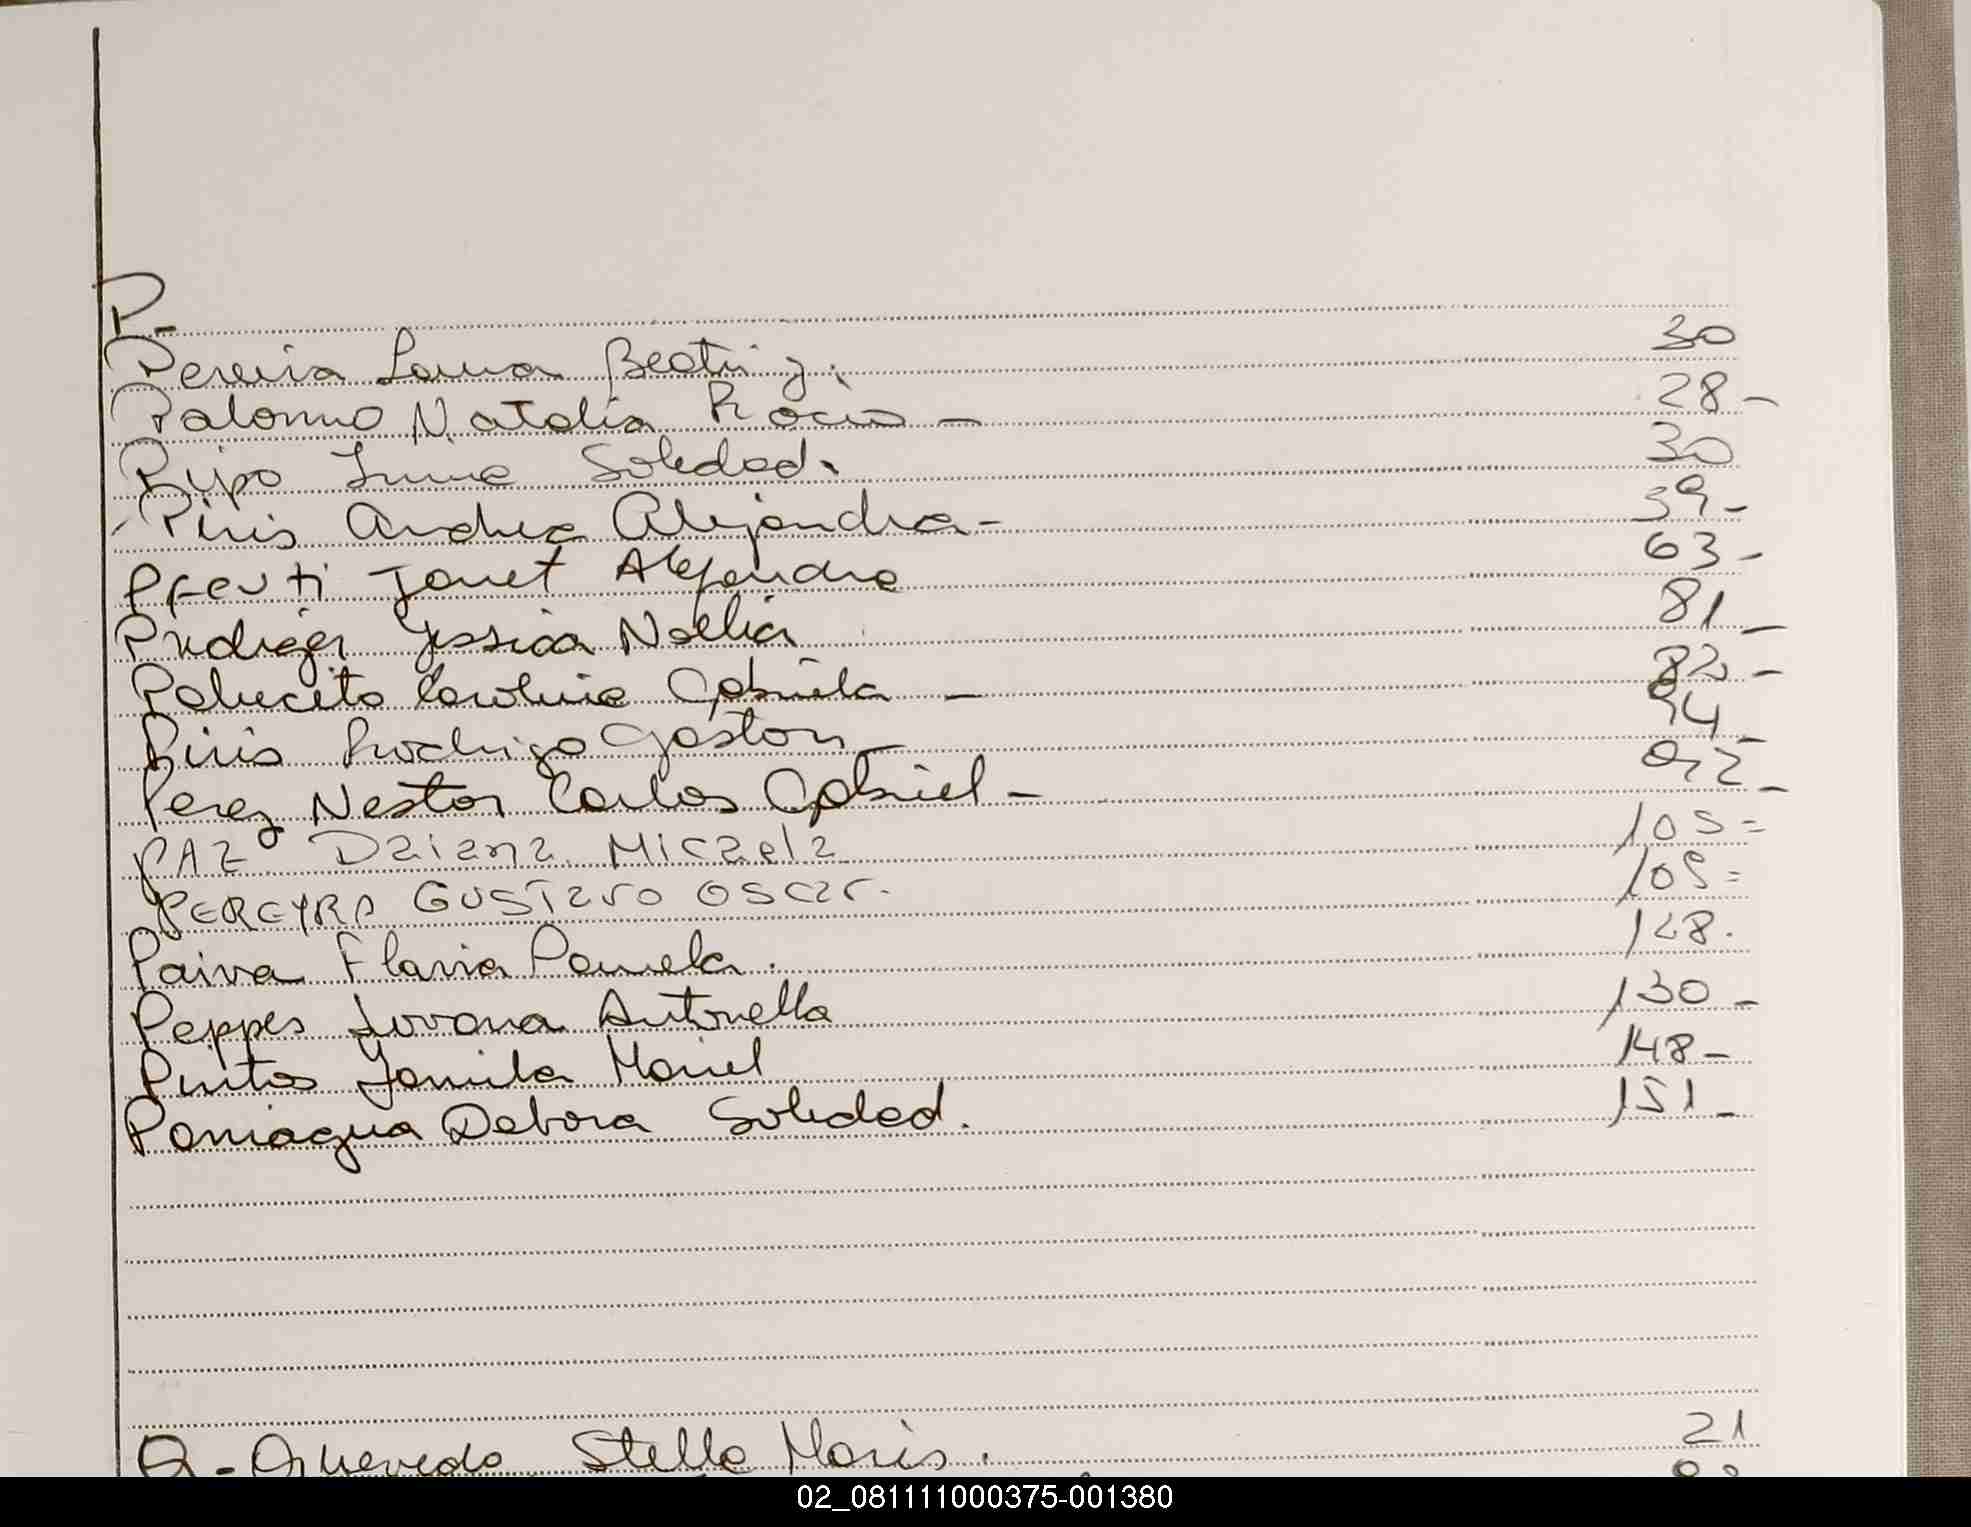 P-
Pereira Laura Beatriz. 30
Palomo Natalia Rocio - 28 -
Ripo Soledad. 30
Piris Andrea Alejandra - 39 -
Pfeuti Janet Alejandra 63 -
Prediger Yessica Noelia 81 -
Palucito Carolina Gabriela - 82 -
Piris Rodrigo Gaston - 94 -
Perez Nestor Carlos Gabriel - 95 -
PAZ Daiana Micaela 105 =
PEREYRA GUSTavo OSCar. 105 =
Paiva Flavia Pamela. 128.
Peppes Jovana Antonella 130 -
Pintos Jamila Mariel 148 -
Paniagua Debora Soledad. 151 -
Q - Quevedo Stella Maris. 21
02_081111000375-001380